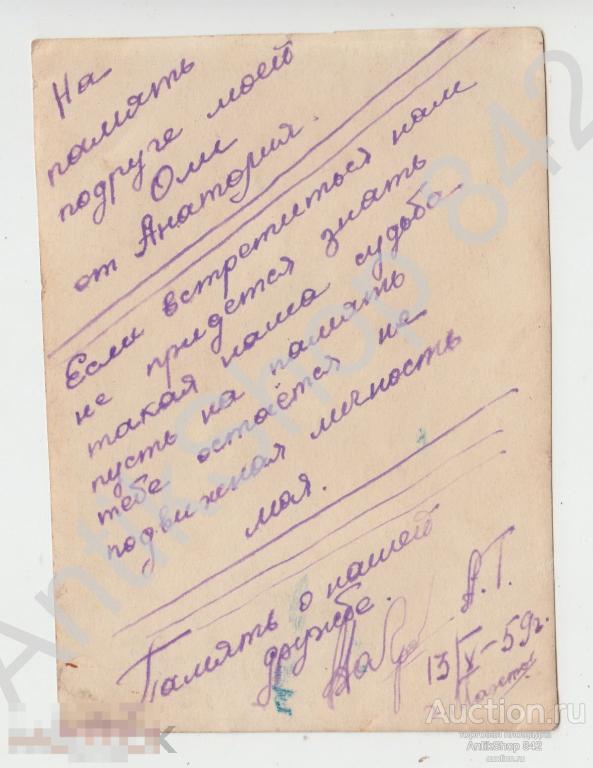 На
память
подруге моей
Оли
от Анатория.
Если встретиться нам
не придется знать
такая наша судьба
пусть на память
тебе остаётся не
подвижная личность
моя.
Память о нашей
дружбе.
А.Т.
13/V-59г.
AntikShop 842
Auction.ru
торговая площадка
AntikShop 842
auction.ru